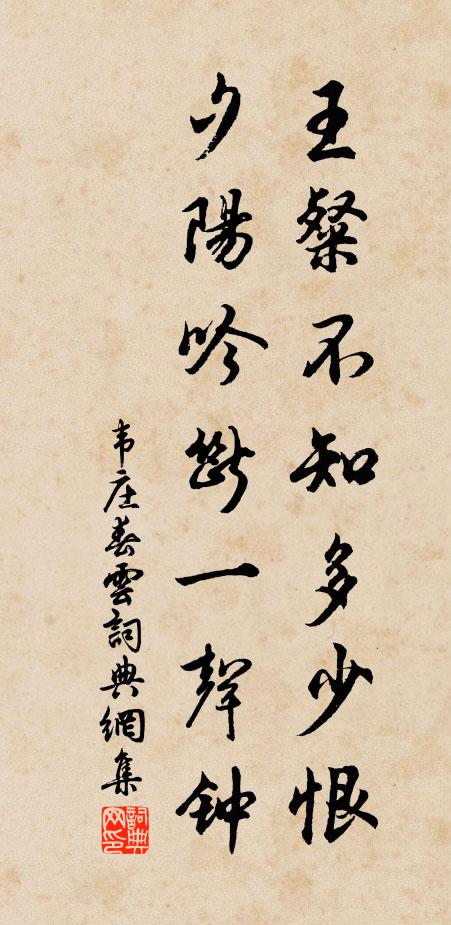 王粲不知多少恨
夕陽吟斷一聲钟
韦庄春雲詞典網集
詞典网印